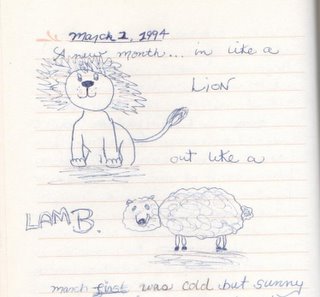 March 1, 1994
A new month... in like a
Lion
out like a
LAMB.
march first was cold but sunny